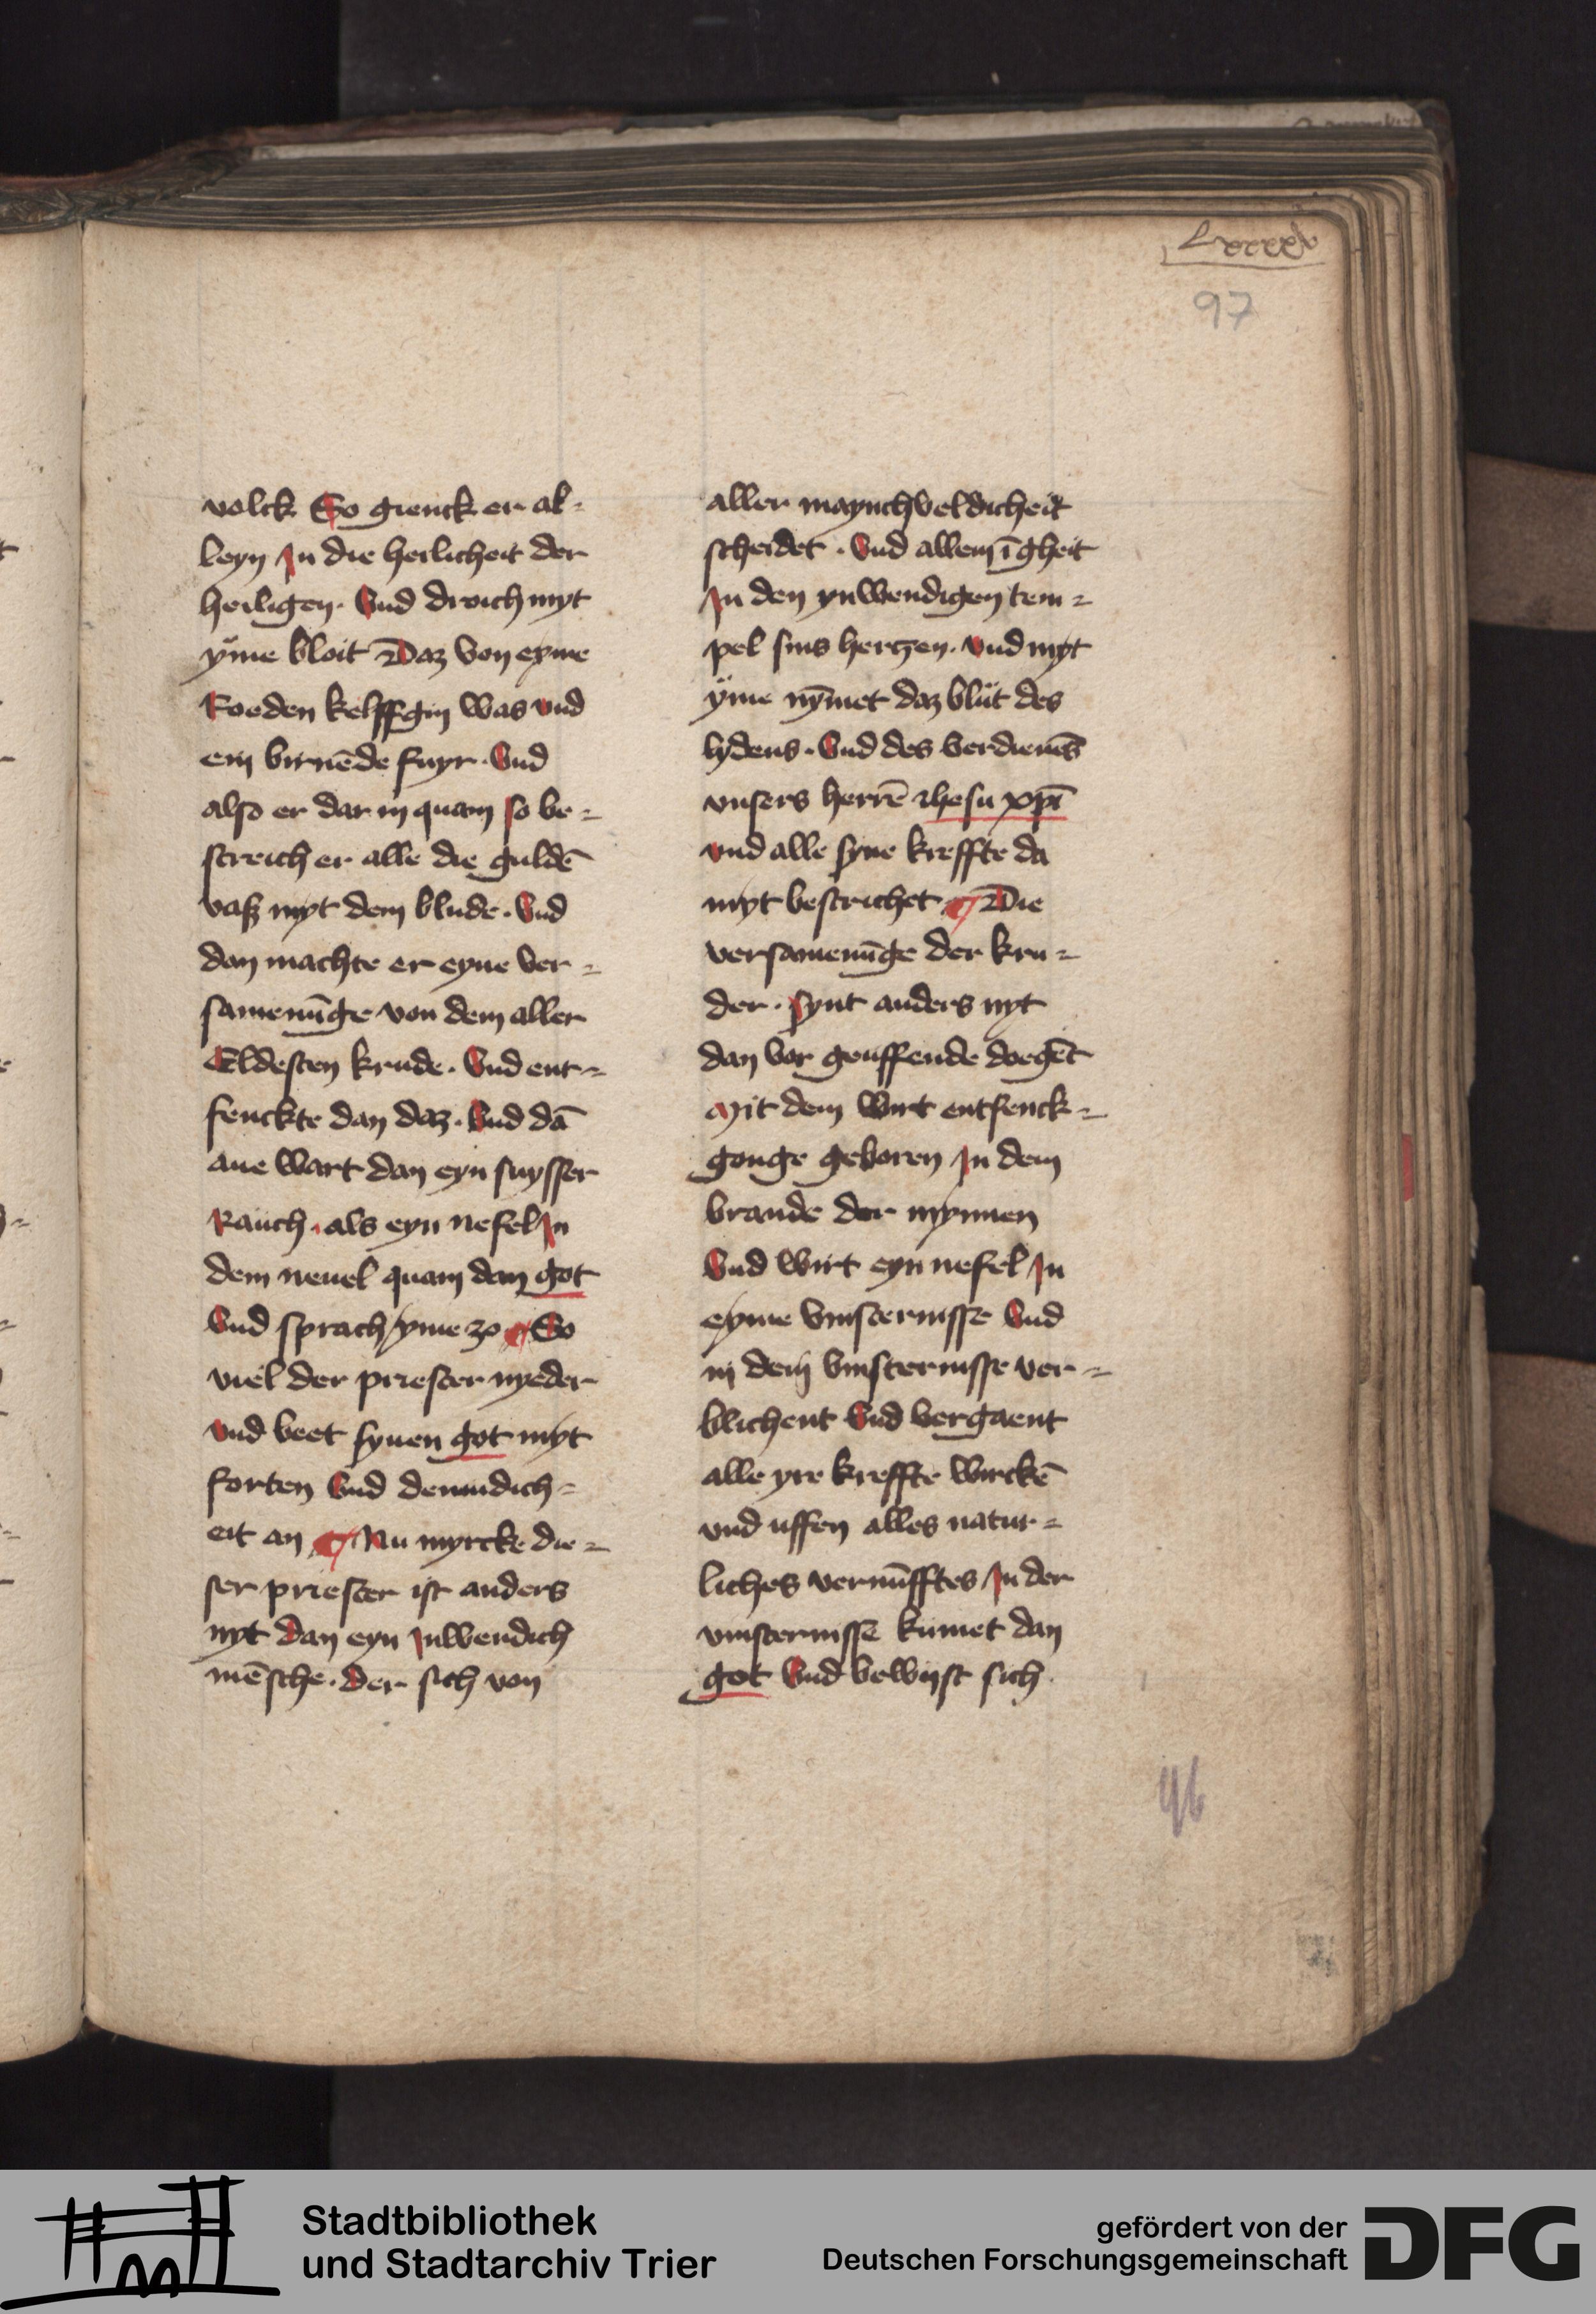 Lxxxxv
97
volck So gienck er al-
leyn In die heilicheit der
heiligen. Vnd droich myt
yme bloit Daz von eyme
Roeden kelffgin was vnd
ein birnēde fuyr. Vnd
also er dar in quam so be-
streich er alle die guldē
vasz myt dem blude. Vnd
dan machte er eyne ver-
samenūge von dem aller
Eldesten krude. Vnd ent-
fenckte dan daz. Vnd dā
ane wart dan eyn suysser
Rauch. als eyn nefel In
dem neuel quam dan got
Vnd sprach yme zo So
viel der priester nyeder
vnd beet synen got myt
forten Vnd demudich-
eit an Nu myrcke die-
ser priester ist anders
nyt dan eyn Inwendich
mēsche. der sich von
aller maynchveldicheit
scheidet. Vnd allenīgheit
In den ynwendigen tem-
pel sins hertzen. vnd myt
yme nȳmet daz blůt des
lydens. Vnd des verdienēs
vnsers herrē Ihesu xpī
vnd alle syne kreffte da
myt bestrichet Die
versamenūge der kru-
der. synt anders nyt
dan vor geuffende doegēt
Mit dem wirt entfenck-
gonge geboren In dem
brande der mynnen
Vnd wirt eyn nefel In
eyme vinsternisse Vnd
in dem vinsternisse ver-
blichent Vnd vergaent
alle yre kreffte wirckē
vnd uffen alles natur-
liches vernūfftes In der
vinsternisse kumet dan
got Vnd bewijst sich
96
Stadtbibliothek
und Stadtarchiv Trier
gefördert von der
Deutschen Forschungsgemeinschaft
DFG